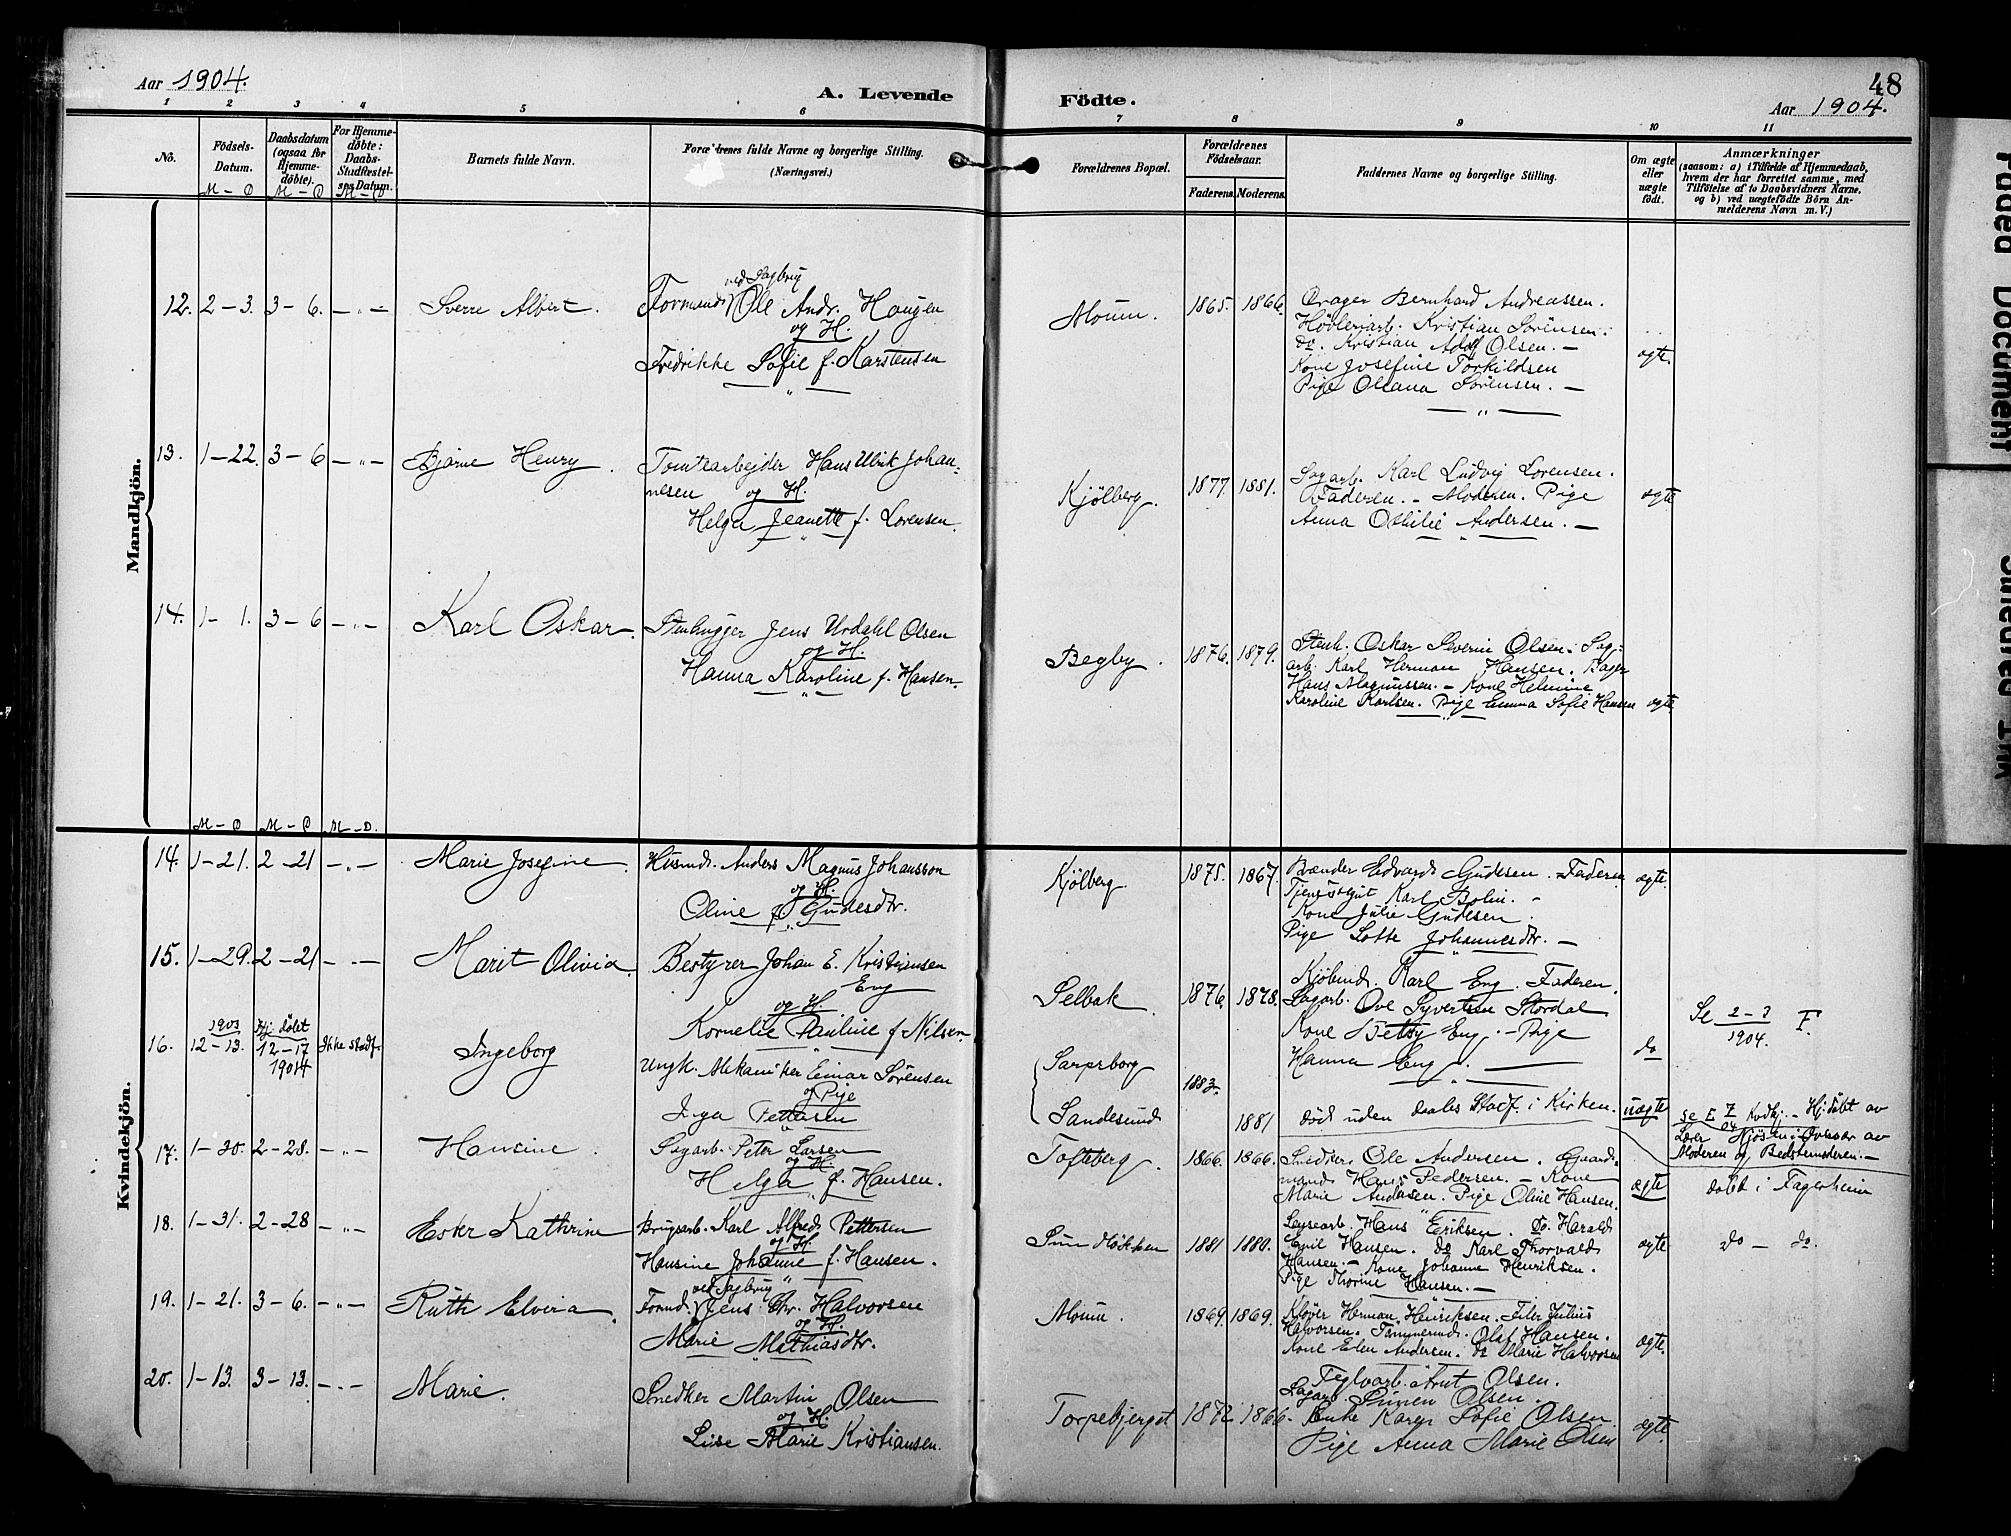 Aar 1904.
A. Levende Födte.
48
Aar 1904.
1 2 3 4 5 6 7 8 9 10 11
No.
Födsels-Datum.
M – D
Daabsdatum (ogsaa for Hjemme-döbte).
M – D
For Hjemme-döbte: Daabs-Stadfæstel-ses Datum.
M – D
Barnets fulde Navn.
Forældrenes fulde Navne og borgerlige Stilling.
(Næringsvei.)
Forældrenes Bopæl.
Forældrenes Födselsaar.
Faderens. Moderens.
Faddernes Navne og borgerlige Stilling.
Om ægte eller uægte födt.
Anmærkninger
(saasom: a) i Tilfælde af Hjemmedaab,
hvem der har forrettet samme, med
Tilföielse af to Daabsvidners Navne,
og b) ved uægtefödte Börn An-
melderens Navn m. V.)
Mandkjön.
12. 2–3. 3–6. –„– Sverre Albert.
ved Sagbrug
Formand Ole Andr. Haugen
og H.
Fredrikke Sofie f. Karstensen
Moum. 1865. 1866.
Drager Bernhard Andreassen.
Høvleriarb. Kristian Sørensen.
do. Kristian Adolf Olsen. –
Kone Josefine Torkildsen
Pige Oleana Sørensen. –
ægte.
13. 1–22. 3–6 –„– Bjarne Henry.
Tomtearbejder Hans Ulrik Johan-
nesen og H.
Helga Jeanette f. Lorensen.
Kjølberg. 1877. 1881.
Sagarb. Karl Ludvig Lorensen.
Faderen. – Moderen. Pige
Anna Othilie Andersen. –
ægte
14. 1–1. 3–6 –„– Karl Oskar.
Stenhugger Jens Urdahl Olsen
og H.
Hanna Karoline f. Hansen.
Begby. 1876. 1879.
Stenh. Oskar Severin Olsen. Sag-
arb. Karl Herman Hansen. Bager
Hans Magnussen. – Kone Helmine
Karoline Karlsen. Pige Emma Sofie Hansen
ægte
M – D M – D M – D.
Kvindekjön.
14. 1–21. 2–21 –„– Marie Josefine.
Husmd. Anders Magnus Johansson
og H.
Oline f. Gudesdtr.
Kjølberg 1875. 1867.
Brænder Edvard Gudesen. Faderen
Tjenestegut Karl Bolin. –
Kone Julie Gudesen.
Pige Lotte Johannesdtr. –
ægte.
15. 1–29. 2–21 –„– Marit Olivia.
Bestyrer Johan E. Kristiansen
Eng
og H.
Kornelie Pauline f. Nilsen.
Selbak 1876. 1878.
Kjøbmd. Karl Eng. Faderen.
Sagarb. Ove Syvertsen Stordal
Kone Betsy Eng. – Pige
Hanna Eng. –
do
Se 2–3 1904. F.
16. 1903 12–13. Hj. døbt 12–17 1904 Ikke stadf. Ingeborg
Ungk. Mekaniker Einar Sørensen
og Pige
Inga Pettersen
Sarpsborg 1883.
Sandesund 1881
død uden daabs Stadf. i Kirken.
uægte
Hj. døbt av
Lærer Mjøsen i Overvær av
Moderen og Bedstemoderen. –
17. 1–30. 2–28. –„– Hansine.
Sagarb. Peter Larsen
og H.
Helga f. Hansen.
Tofteberg. 1866. 1866.
Snedker Ole Andersen. Gaard-
mand Hans Pedersen. – Kone
Marie Andersen. Pige Oline Hansen.
ægte
døbt i Fagerheim
18. 1–31. 2–28 –„– Ester Kathrine
Brugsarb. Karl Alfred Pettersen
og H.
Hansine Johanne f. Hansen.
1881 1880.
Hans Eriksen. Do. Harald
Emil Hansen. do Karl Thorvald
Hansen. – Kone Johanne Henriksen.
Pige Thorine Hansen. –
ægte
do – do.
19. 1–21. 3–6. –„– Ruth Elvira.
ved Sagbrug
Formd. Jens Chr. Halvorsen
og H.
Marie Mathiasdtr.
Moum. 1869. 1869.
Kløver Herman Henriksen. Filer Julius
Halvorsen. Tømmermd. Olaf Hansen.
Kone Elen Andersen. do Marie Halvorsen
ægte.
20. 1–13. 3–13. –„– Marie.
Snedker Martin Olsen
og H.
Lise Marie Kristiansen.
Torpebjerget 1872 1866.
Teglvarb. Anut Olsen.
Sagarb. Simen Olsen.
Enke Karen Sofie Olsen
Pige Anna Marie Olsen
ægte.
Faded Document
Smeared Ink